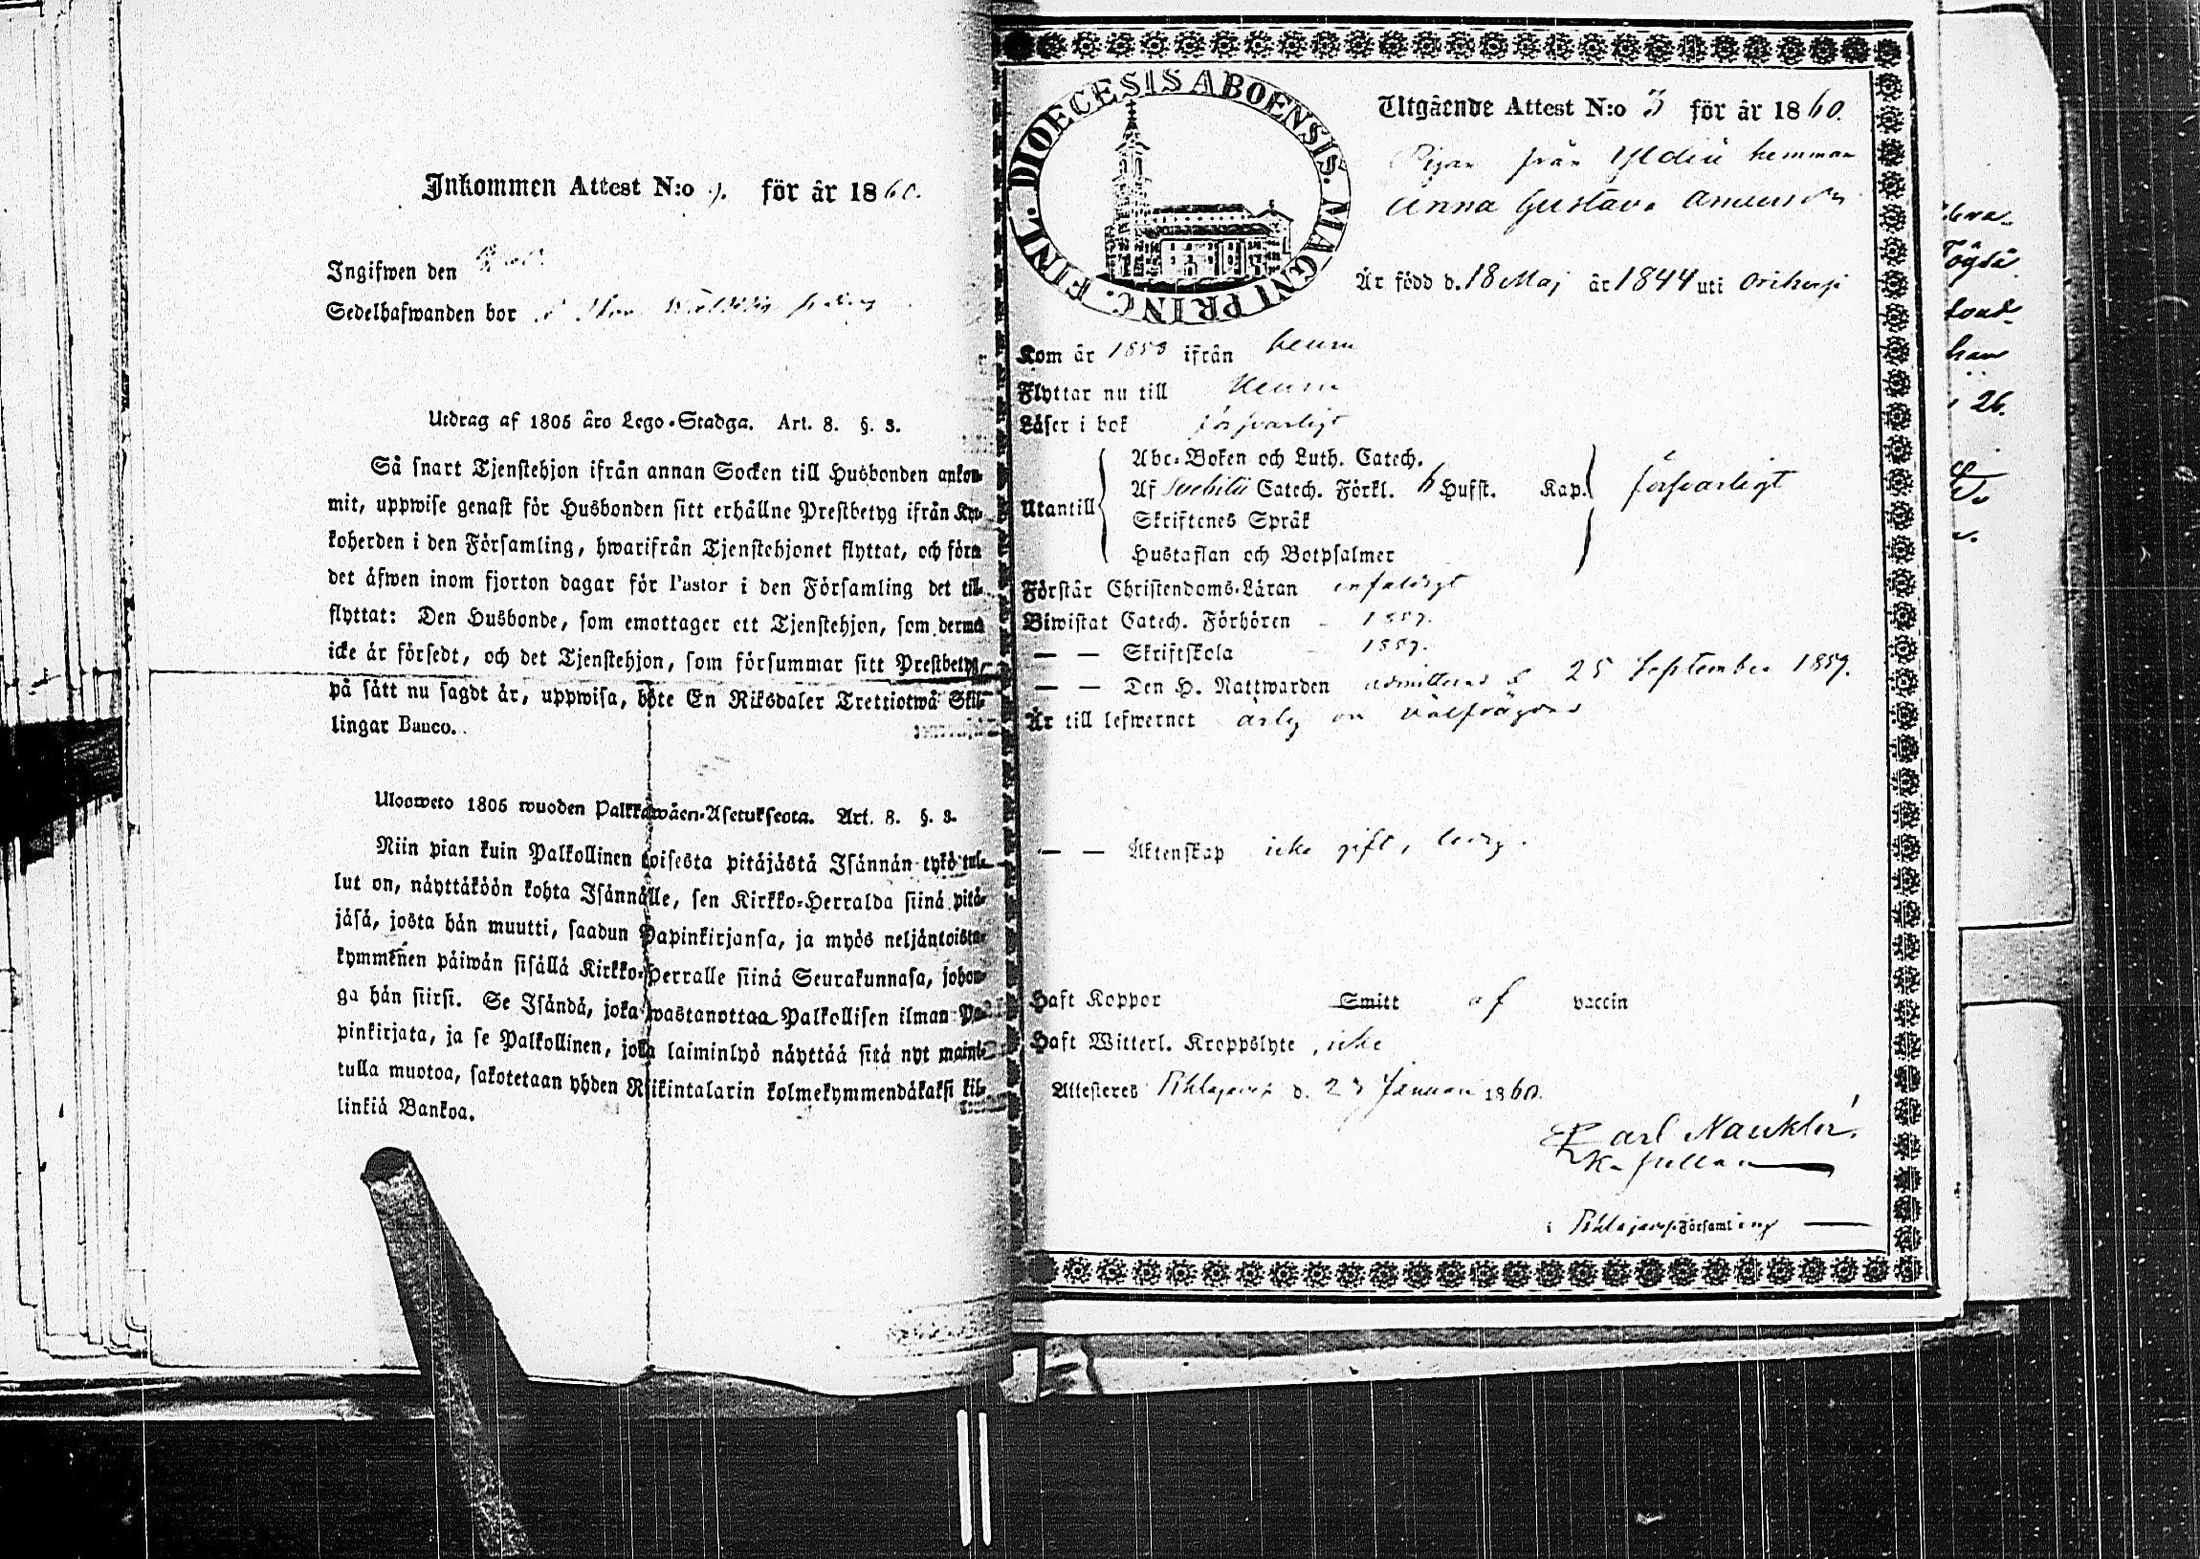 Inkommen Attest N:o för år 1860.
Ingifwen den
Sedelhafwanden bor
Utdrag af 1805 års Lego-Stadga. Art. 8. §. 3.
Så snart Tjenstehjon ifrån annan Socken till Husbonden ankom-
mit, uppwise genast för Husbonden sitt erhållne Prestbetyg ifrån Kyr-
koherden i den Församling, hwarifrån Tjenstehjonet flyttat, och före
det äfwen inom fjorton dagar för Pastor i den Församling det till-
flyttat: Den Husbonde, som emottager ett Tjenstehjon, som dermed
icke är försedt, och det Tjenstehjon, som försummar sitt Prestbetyg,
på sätt nu sagdt är, uppwisa, böte En Riksdaler Trettiotwå Skil-
lingar Banco.
Ulosweto 1805 wuoden Palkkawäen-Asetuksesta. Art. 8. §. 3.
Niin pian kuin Palkollinen toisesta pitäjästä Isännän tykö tul-
lut on, näyttäköön kohta Isännälle, sen Kirkko-Herralda siinä pitä-
jäsä, josta hän muutti, saadun Papinkirjansa, ja myös neljäntoista-
kymmenen päiwän sisällä Kirkko-Herralle siinä Seurakunnasa, johon-
ga hän siirsi. Se Isändä, joka wastanottaa Palkollisen ilman Pa-
pinkirjata, ja se Palkollinen, joka laiminlyö näyttää sitä nyt maini-
tulla muotoa, sakotetaan yhden Riikintalarin kolmekymmendäkaksi kil-
linkiä Bankoa.
DIOECESIS ABOENSIS. MAGNI PRINC. FINL.
Utgående Attest N:o 3 för år 1860.
Pigan från hemman
Anna Gustava
Är född d. 18 Maj år 1844 uti Orihvesi
Kom år 1853 ifrån
Flyttar nu till
Läser i bok försvarligt
Abc-Boken och Luth. Catech.
Utantill Af Svebilii Catech. Förkl. 6 Hufst. Kap. försvarligt
Skriftenes Språk
Hustaflan och Botpsalmer
Förstår Christendoms-Läran enfaldigt
Biwistat Catech. Förhören 1859.
— — Skriftskola 1859.
— — Den H. Nattwarden admitterad d 25 September 1859.
Är till lefwernet ärlig och välfrägdad
— — Äktenskap icke gift, ledig.
Haft Koppor Smitt af vaccin
Haft Witterl. Kroppslyte, icke
Attesteres d. 23 Januari 1860.
Karl Nauklér.
Kapellan
i Församling
26.